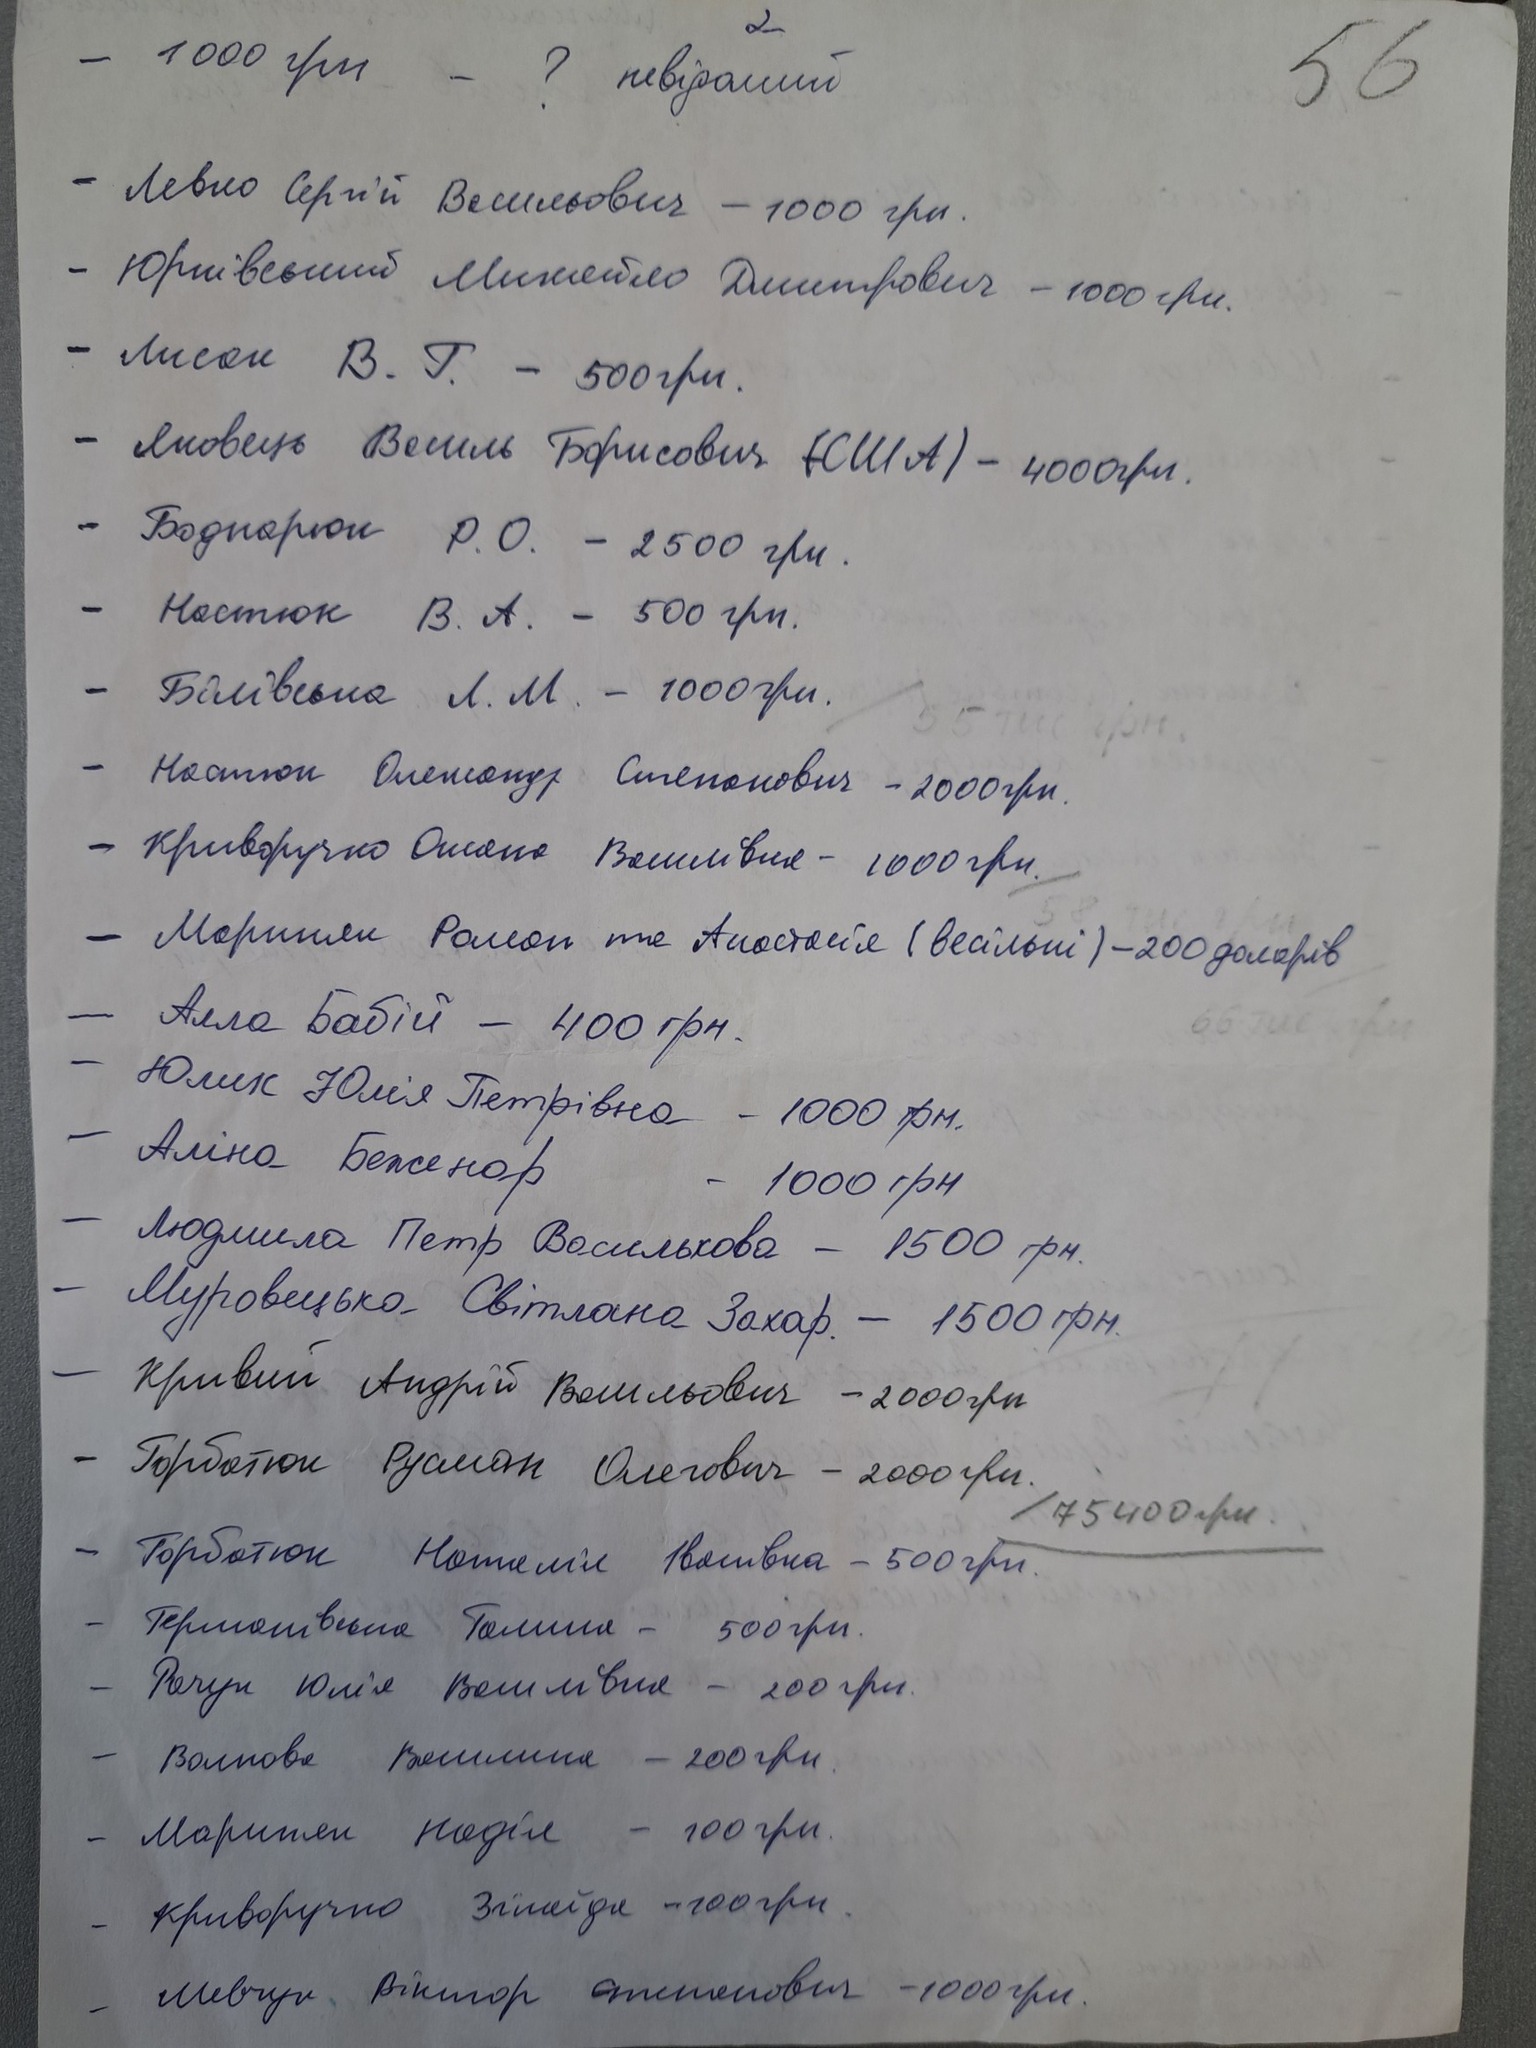 2
56
- 1000 грн - ? невідомий
- Левко Сергій Васильович - 1000 грн.
- Юрківський Михайло Дмитрович - 1000 грн.
- Лисак В. Г. - 500 грн.
- Яковець Василь Борисович (США) - 4000 грн.
- Боднарюк Р.О. - 2500 грн.
- Настюк В. А. - 500 грн.
- Білівська Л. М. - 1000 грн.
55 тис грн.
- Настюк Олександр Степанович - 2000 грн.
- Криворучко Оксана Василівна - 1000 грн.
58 тис грн
- Мариняк Роман та Анастасія (весільні) - 200 доларів
66 тис грн
- Алла Бабій - 400 грн.
- Юлик Юлія Петрівна - 1000 грн.
- Аліна Беженар - 1000 грн
- Людмила Петр Василькова - 1500 грн.
- Муровецька Світлана Захар. - 1500 грн.
- Кривий Андрій Васильович - 2000 грн
- Горбатюк Руслан Олегович - 2000 грн.
75400 грн.
- Горбатюк Наталія Іванівна - 500 грн.
- Германівська Галина - 500 грн.
- Рачук Юлія Василівна - 200 грн.
- Волкова Василина - 200 грн.
- Мариняк Надія - 100 грн.
- Криворучко Зінаїда - 100 грн.
- Шевчук Віктор Степанович - 1000 грн.